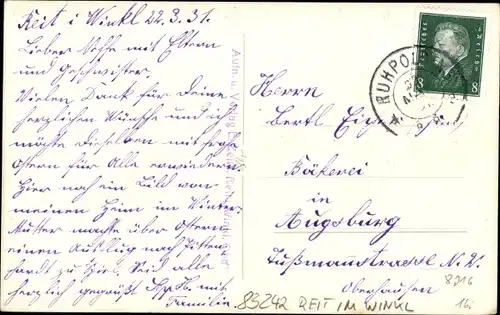 Reit i Winkl 22.3.31.
Lieber Neffe mit Eltern
und Geschwister.
Vielen Dank für Deine
herzlichen Wünsche und ich
möchte Dieselben mit frohe
Ostern für Alle erwiedern.
Hier noch ein Bild von
meinem Heim im Winter.
Mutter machte über Ostern
einen Ausflug nach
zu Seid alle
herzlich gegrüßt mit
Familie.
Deutsches Reich
8 8
RUHPOL
Herrn
Bertl
Bäkerei
in
Augsburg
Fußmannstrasse N. 2.
Oberhausen
8216
16i
83242 REIT IM WINKL